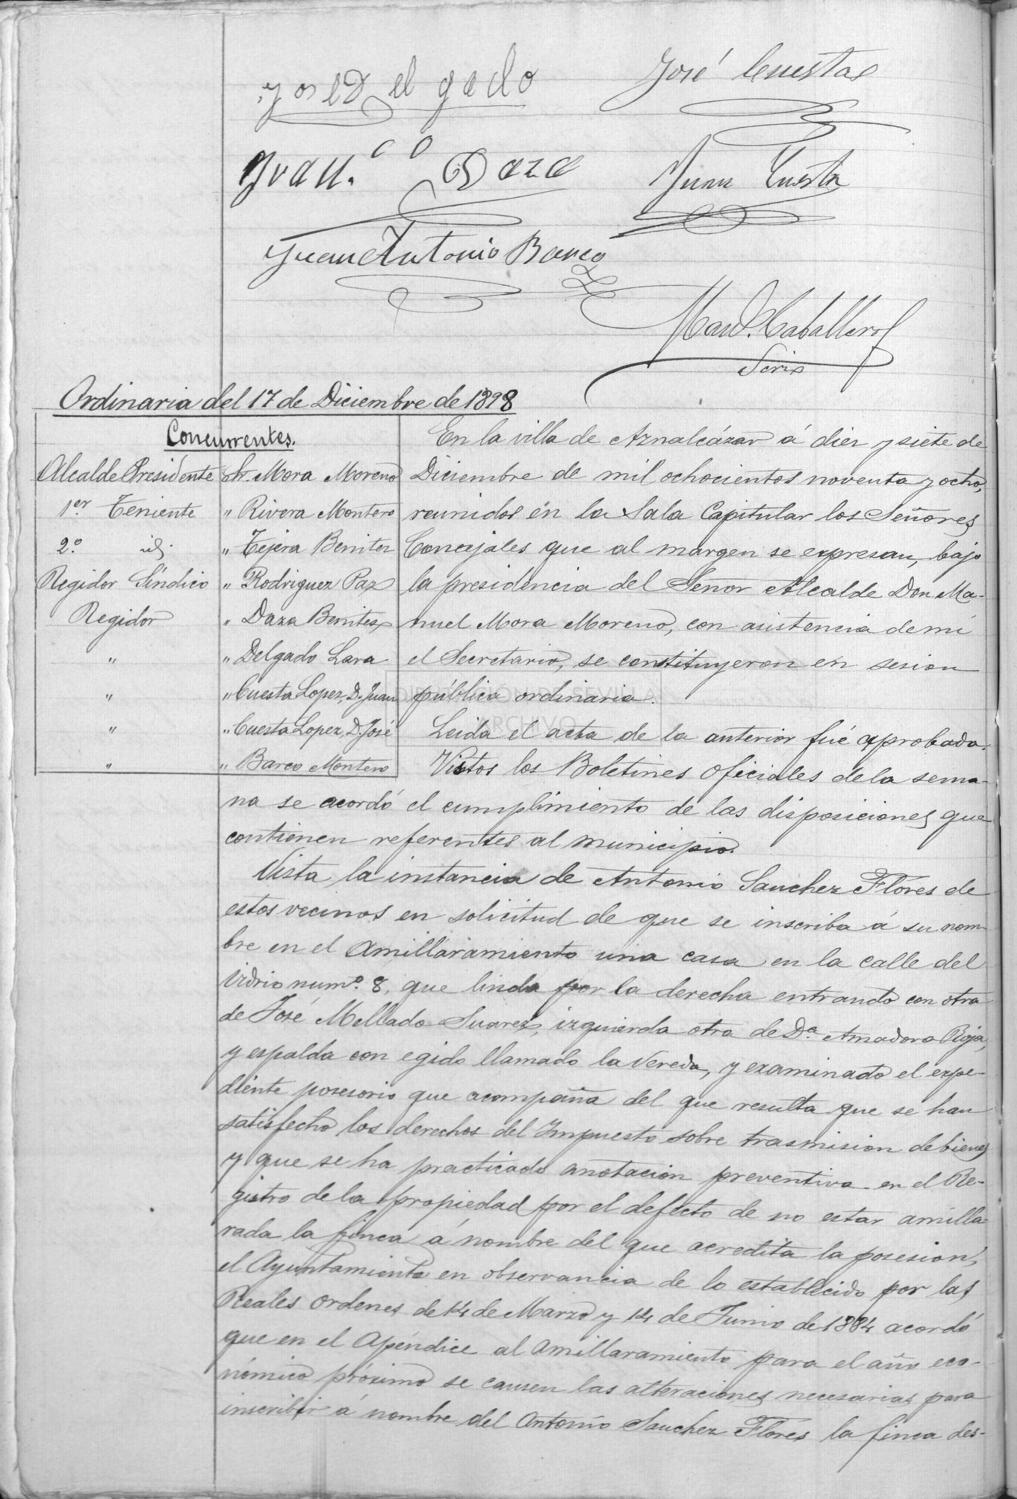 José Delgado
José Cuestas
Juan Daza
Juan Cuesta
Juan Antonio Barco
Man.l Caballero
Srio
Ordinaria del 17 de Diciembre de 1898
Concurrentes.
Alcalde Presidente Sr. Mora Moreno
1er Teniente " Rivera Montero
2.º id. " Tejera Benitez
Regidor Síndico " Rodriguez Paz
Regidor " Daza Benitez
" " Delgado Lara
" " Cuesta Lopez, D. Juan
" " Cuesta Lopez, D. José
" " Barco Montero
En la villa de Aznalcázar á diez y siete de
Diciembre de mil ochocientos noventa y ocho,
reunidos en la Sala Capitular los Señores
Concejales que al margen se expresan, bajo
la presidencia del Señor Alcalde Don Ma-
nuel Mora Moreno, con asistencia de mi
el Secretario, se constituyeron en sesion
pública ordinaria.
Leida el acta de la anterior fué aprobada.
Vistos los Boletines oficiales de la sema-
na se acordó el cumplimiento de las disposiciones que
contienen referentes al municipio.
Vista la instancia de Antonio Sanchez Flores de
estos vecinos en solicitud de que se inscriba á su nom-
bre en el amillaramiento una casa en la calle del
Vidrio num.º 8, que linda por la derecha entrando con otra
de José Mellado Suarez, izquierda otra de D.ª Amadora Rioja,
y espalda con egido llamado la Vereda, y examinado el expe-
diente posesorio que acompaña del que resulta que se han
satisfecho los derechos del Impuesto sobre trasmision de bienes
y que se ha practicado anotacion preventiva en el Re-
gistro de la propiedad por el defecto de no estar amilla-
rada la finca á nombre del que acredita la posesion,
el Ayuntamiento en observancia de lo establecido por las
Reales ordenes de 14 de Marzo y 14 de Junio de 1884 acordó
que en el Apéndice al amillaramiento para el año eco-
nómico próximo se causen las alteraciones necesarias para
inscribir á nombre del Antonio Sanchez Flores la finca des-